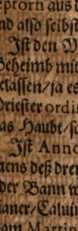 eptorn aus
nd also selbst
Ist den V
Geheimb mit
elassen/ja es
Driester ordi
as Haubt/s
Ist Anno
ens deß drey
der Bann w
aner/Calvin
am Martin